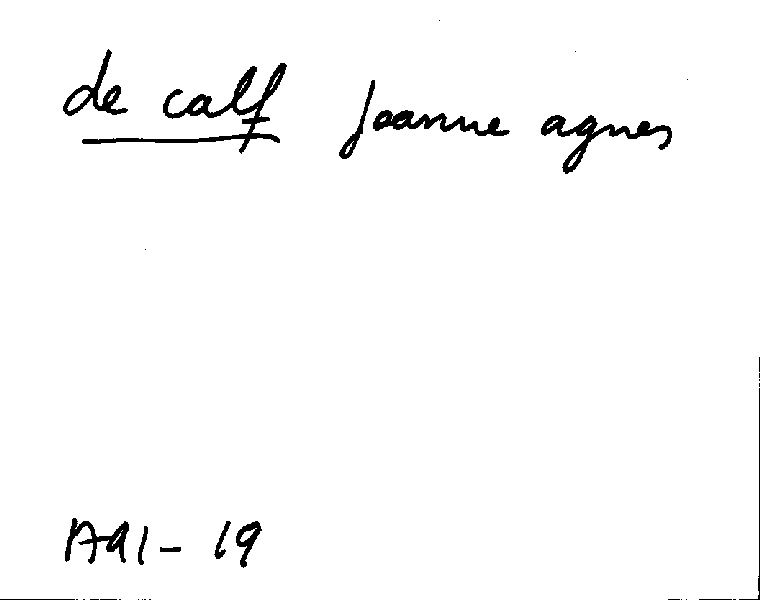 de calf Joanne agnes
A91-19